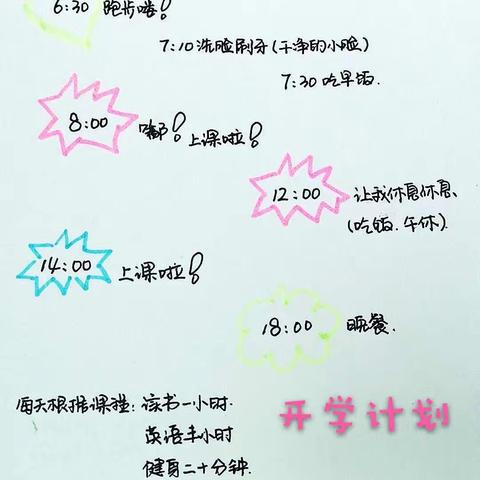 6:30 跑步喽!
7:10 洗脸刷牙(干净的小脸)
7:30 吃早饭.
8:00 嘟!上课啦!
12:00 让我休息休息、
(吃饭.午休).
14:00 上课啦!
18:00 晚餐.
每天根据课程:读书一小时.
英语半小时
健身二十分钟.
开学计划